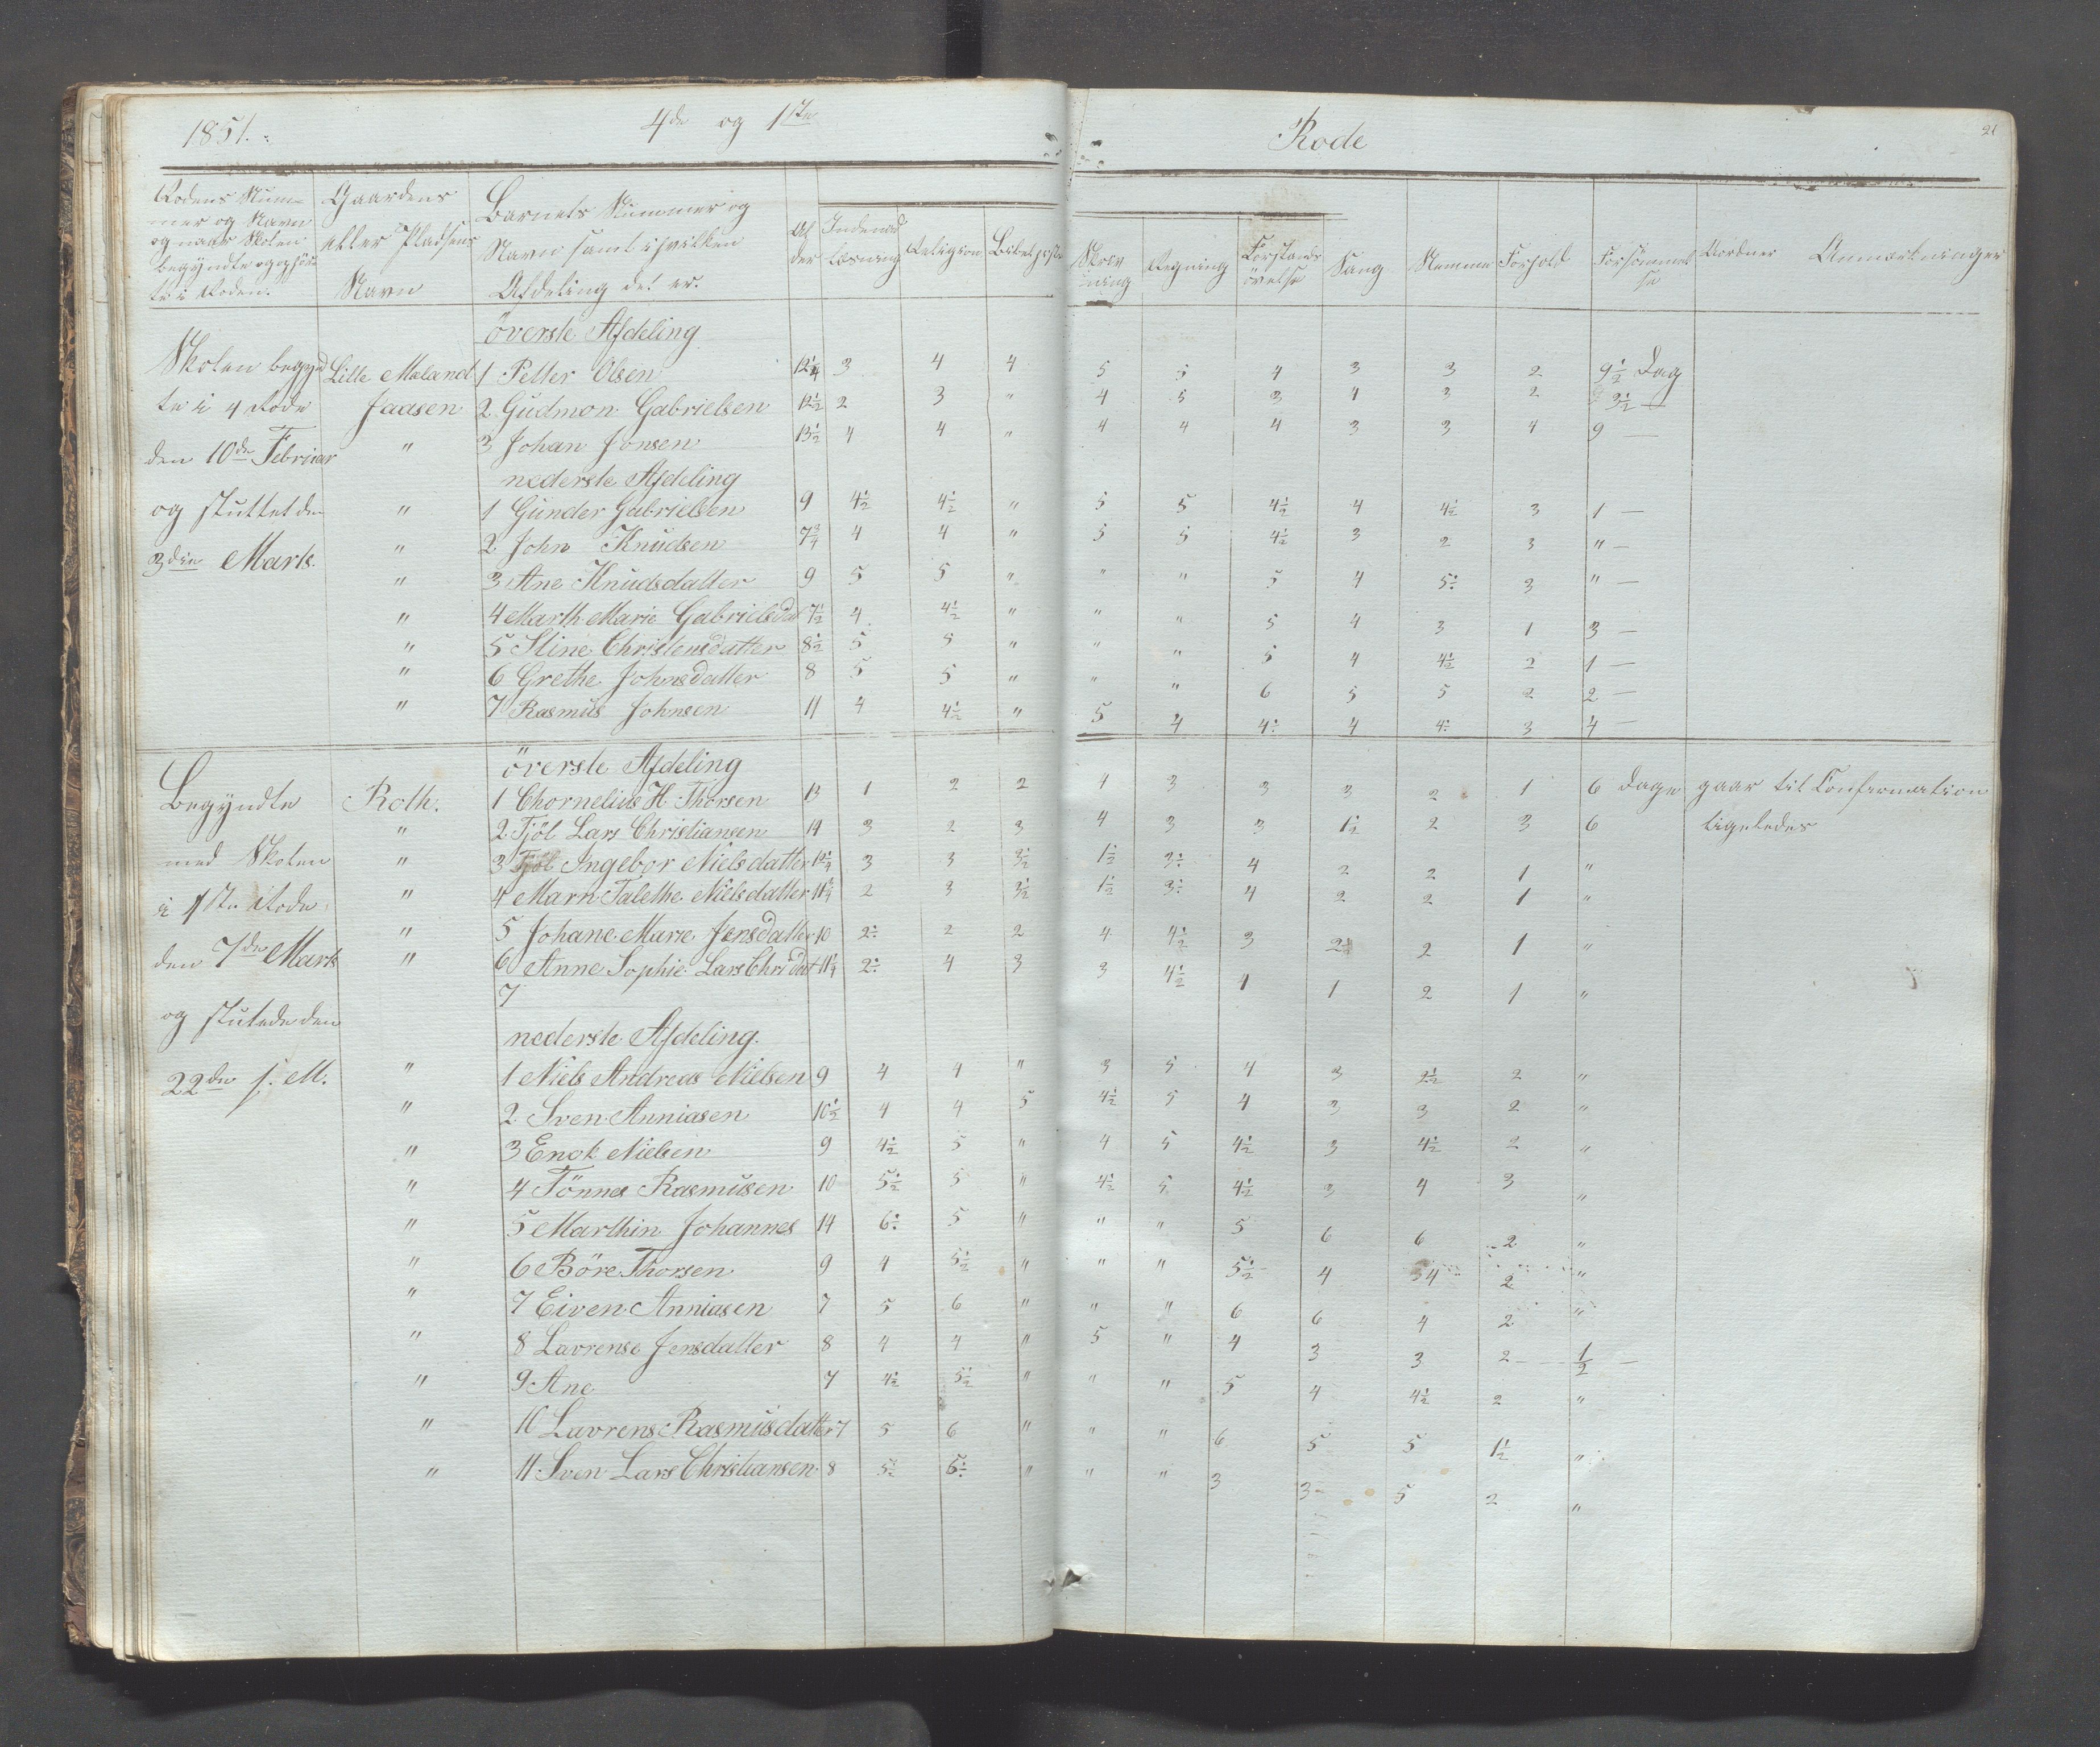 1851. 4de og 1ste Rode 21
Rodens Num- Gaardens Barnets Nummer og
mer og Navn eller Pladsens Navn samt i hvilken Al Indenad Religion Bibelhistr Skriv Regning Forstands Sang Nemme Forhold Forsømmel Vordner Anmærkninger
og naar Skolen Navn Afdeling det er. der Læsning ning övelse se
begyndte og ophör-
te i Roden.
överste Afdeling
Skolen begyn Lille Meland 1 Petter Olsen 12 1/4 3 4 4 5 5 4 3 3 2 9 1/2 Dag
te i 4 Rode Jaasen 2 Gudmon Gabrielsen 12 1/2 2 3 " 4 5 3 1 3 2 3 1/2 —
den 10de Februar " 3 Johan Jonsen 13 1/2 4 4 " 4 4 4 3 3 4 9 —
nederste Afdeling
og sluttet den " 1 Gunder Gabrielsen 9 4 1/2 4 1/2 " 5 5 4 1/2 4 4 1/2 3 1 —
3die Marts. " 2 John Knudsen 7 3/4 4 4 " 5 5 4 1/2 3 2 3 " —
" 3 Ane Knudsdatter 9 5 5 " " " 5 4 5÷ 3 " —
" 4 Marth Marie Gabrielsdat 7 1/2 4 4 1/2 " " " 5 4 3 1 3 —
" 5 Stine Christensdatter 8 1/2 5 5 " " " 5 4 4 1/2 2 1 —
" 6 Grethe Johnsdatter 8 5 5 " " " 6 5 5 2 2 —
" 7 Rasmus Johnsen 11 4 4 1/2 " 5 4 4÷ 4 4÷ 3 4 —
överste Afdeling
Begyndte Roth. 1 Chornelius H. Thorsen 13 1 2 2 4 3 3 3 2 1 6 Dage gaar til Confirmation
" 2 Tjöl Lars Christiansen 14 3 2 3 4 3 3 1 1/2 2 3 6 ligeledes
med Skolen " 3 Tjöl Ingebor Nielsdatter 12 1/4 3 3 3 1/2 1 1/2 3÷ 4 2 2 1 "
i 1ste Rode " 4 Marn Talethe Nielsdatter 11 1/4 2 3 3 1/2 1 1/2 3÷ 4 2 2 1 "
" 5 Johane Marie Jensdatter 10 2÷ 2 2 4 4 1/2 3 2 2 1 "
den 7de Marts " 6 Anne Sophie Lars Chri dat 11 1/4 2÷ 4 3 3 4 1/2 1 1 2 1 "
7
og slutede den
nederste Afdeling.
22de s. M. " 1 Niels Andreas Nielsen 9 4 4 " 3 5 4 3 2 1/2 2 "
" 2 Sven Anniasen 10 1/2 4 4 5 4 1/2 5 4 3 3 2 "
" 3 Enok Nielsen 9 4 1/2 5 " 4 5 4 1/2 3 4 1/2 2 "
" 4 Tönnes Rasmusen 10 5 1/2 5 " 4 1/2 5 4 1/2 3 4 3 "
" 5 Marthin Johannes 14 6÷ 5 " " " 5 6 6 2 "
" 6 Böre Thorsen 9 4 5 1/2 " " " 5 1/2 4 4 2 "
" 7 Eiven Anniasen 7 5 6 " " " 6 6 4 2 "
" 8 Lavrense Jensdatter 8 4 4 " 5 " 4 3 3 2 1/2 —
" 9 Ane 7 4 1/2 5 1/2 " " " 5 4 4 1/2 2 "
" 10 Lavrens Rasmusdatter 7 5 6 " " " 6 5 5 1 1/2 "
" 11 Sven Lars Christiansen 8 5÷ 6÷ " " " 3 3 5 2 "